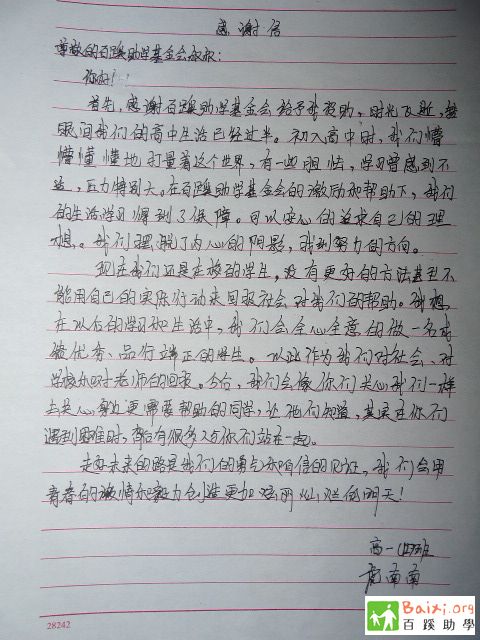 感谢信
尊敬的百蹊助学基金会叔叔:
你好!
首先,感谢百蹊助学基金会给予我资助。时光飞逝,转
眼间我们的高中生活已经过半。初入高中时,我们懵
懵懂懂地打量着这个世界,有一些胆怯,学习曾感到不
适,压力特别大。在百蹊助学基金会的激励和帮助下,我们
的生活学习得到了保障。可以安心的追求自己的理
想。我们摆脱了内心的阴影,找到努力的方向。
现在我们还是在校的学生,没有更好的方法甚至不
能用自己的实际行动来回报社会对我们的帮助。我想,
在以后的学习和生活中,我们会全心全意的做一名成
绩优秀、品行端正的学生。以此作为我们对社会、对
学校和对老师的回报。今后,我们会像你们关心我们一样
去关心身边更需要帮助的同学,让他们知道,其实在你们
遇到困难时,背后有很多人与你们站在一起。
走好未来的路是我们的勇气和自信的见证,我们会用
青春的激情和毅力创造更加 灿烂的明天!
高一 班
南南
28242
Baixi.org
百蹊助學